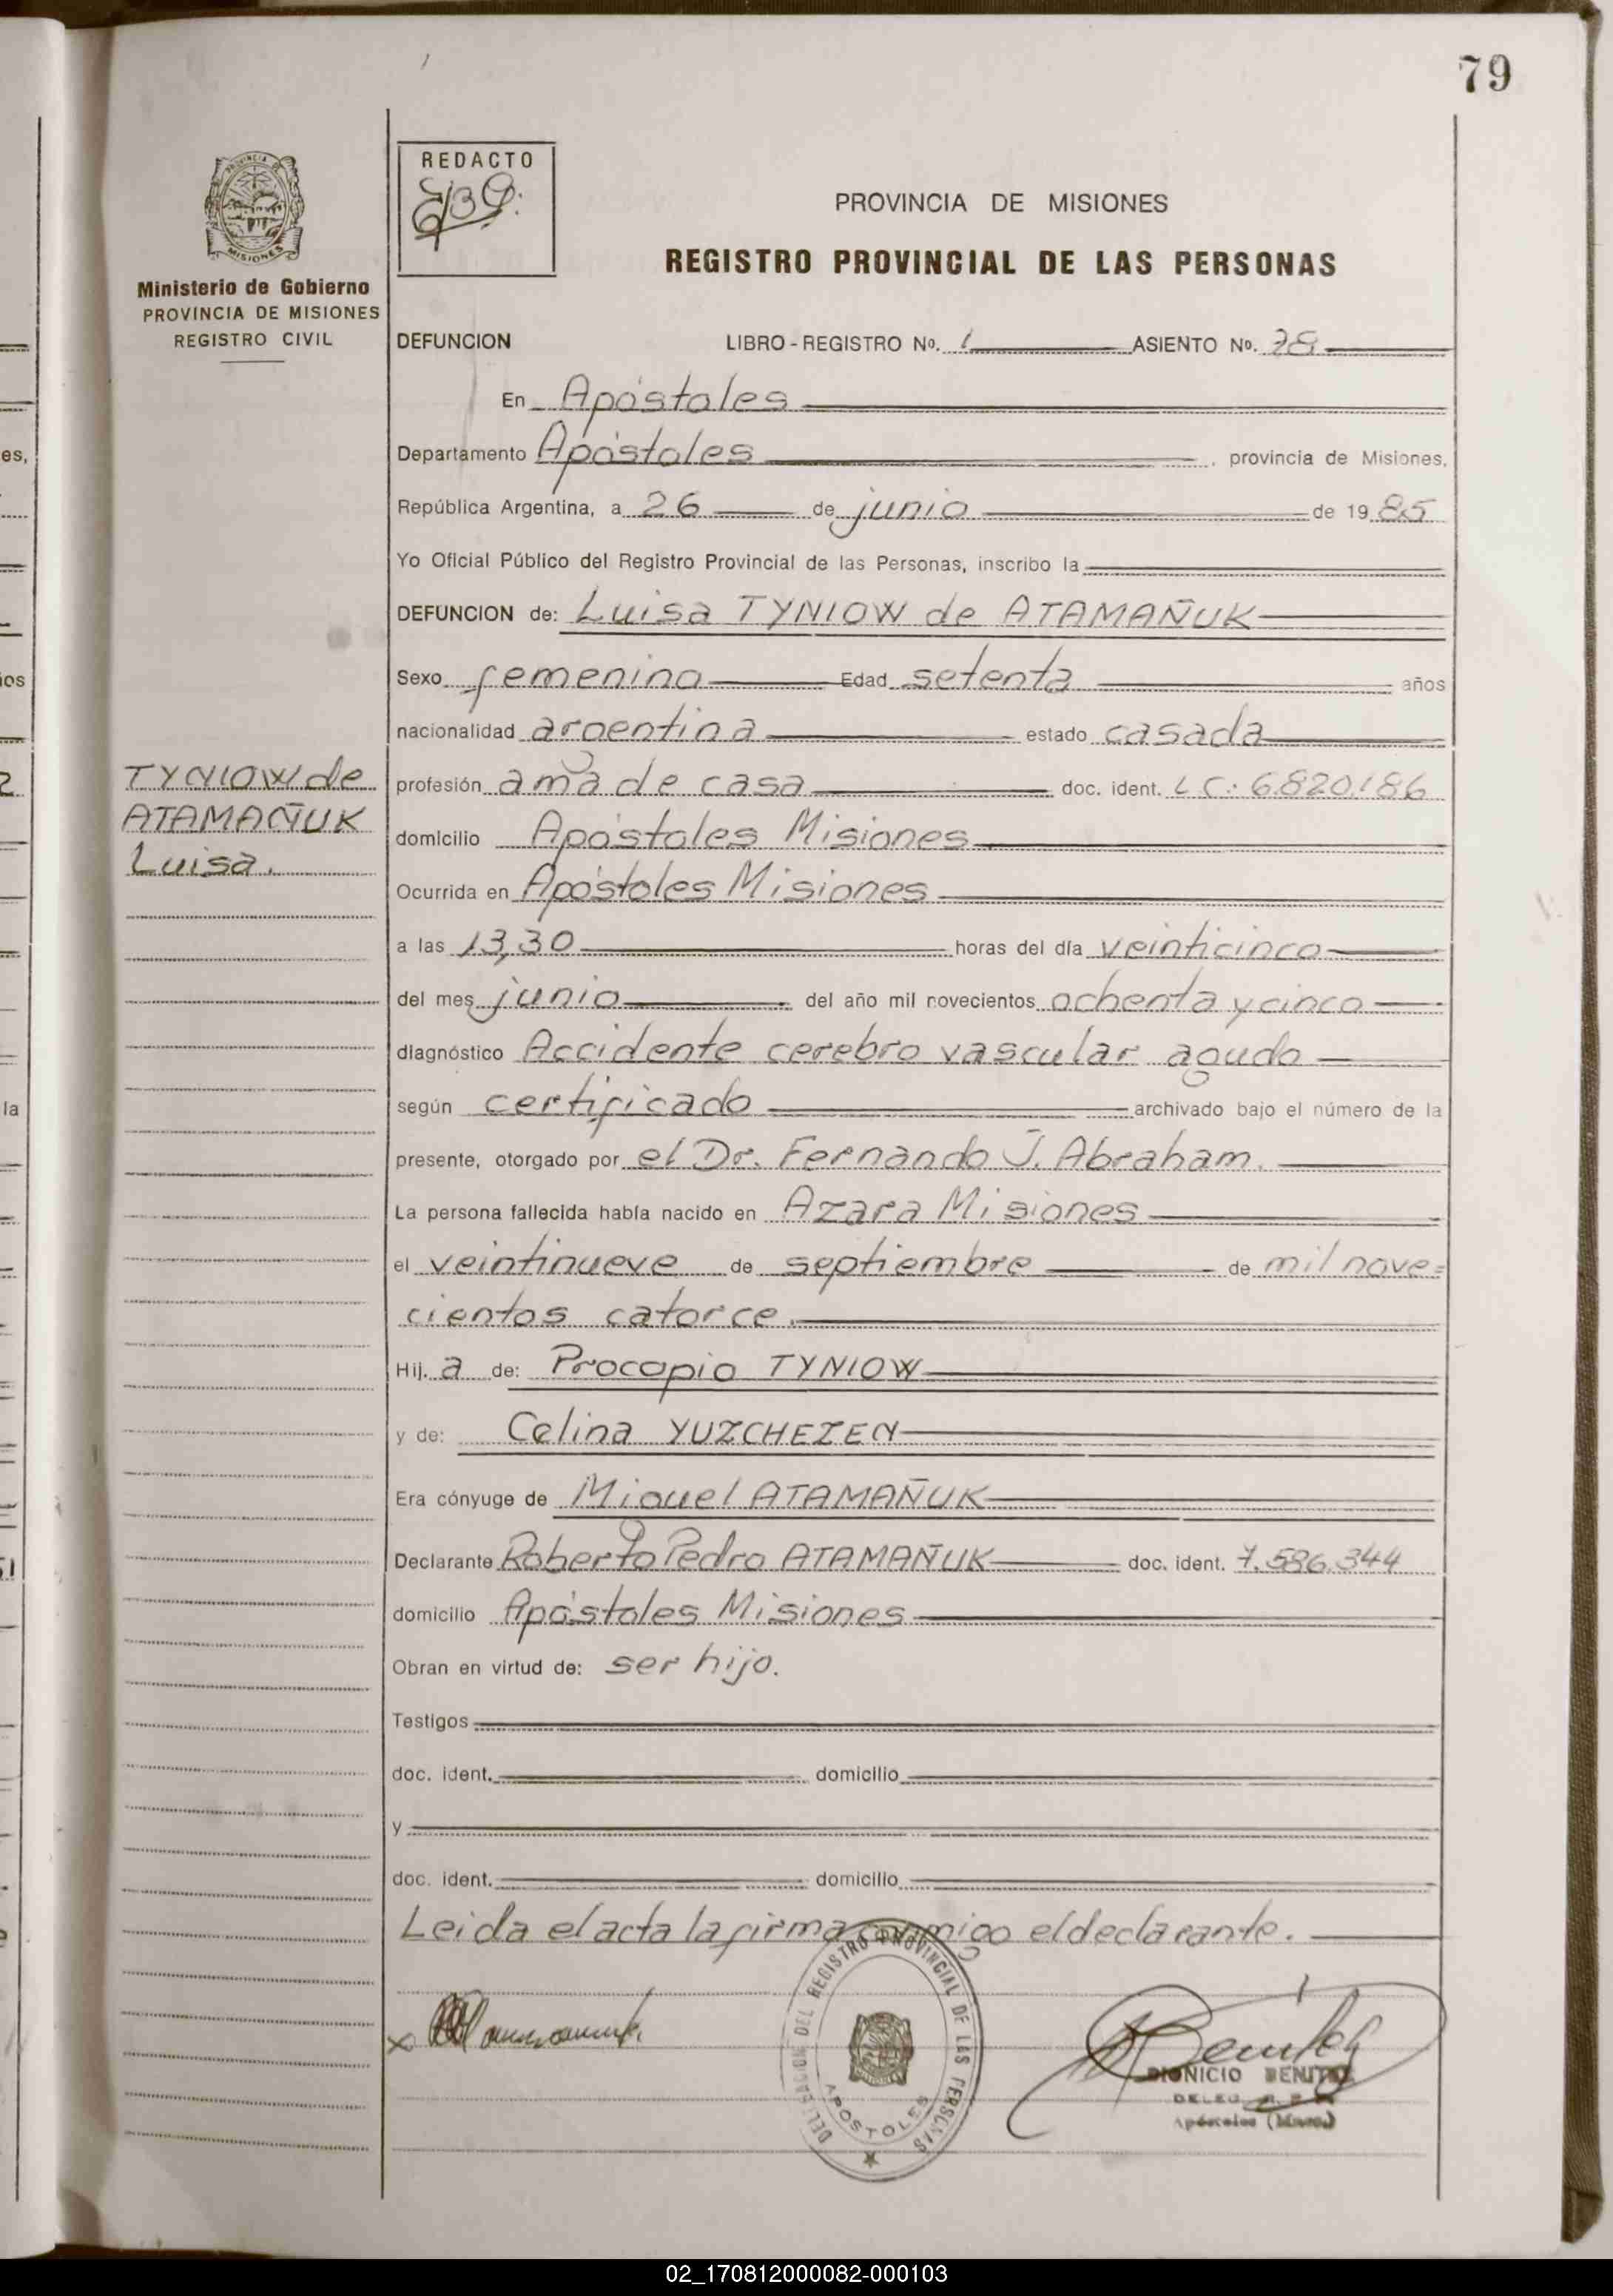 79
REDACTO
PROVINCIA DE MISIONES
REGISTRO PROVINCIAL DE LAS PERSONAS
Ministerio de Gobierno
PROVINCIA DE MISIONES
REGISTRO CIVIL
DEFUNCION LIBRO - REGISTRO Nº. 1 ASIENTO Nº. 78
En Apóstoles
Departamento Apóstoles, provincia de Misiones,
República Argentina, a 26 de junio de 1985
Yo Oficial Público del Registro Provincial de las Personas, inscribo la
DEFUNCION de: Luisa TYNIOW de ATAMAÑUK
Sexo femenino Edad setenta años
nacionalidad argentina estado casada
TYNIOW de
ATAMAÑUK
Luisa.
profesión ama de casa doc. ident. L C.: 6.820.186
domicilio Apóstoles Misiones
Ocurrida en Apóstoles Misiones
a las 13,30 horas del día veinticinco
del mes junio del año mil novecientos ochenta y cinco
diagnóstico Accidente cerebro vascular agudo
según certificado archivado bajo el número de la
presente, otorgado por el Dr. Fernando J. Abraham.
La persona fallecida había nacido en Azara Misiones
el veintinueve de septiembre de mil nove=
cientos catorce.
Hij. a de: Procopio TYNIOW
y de: Celina YUZCHEZEN
Era cónyuge de Miguel ATAMAÑUK
Declarante Roberto Pedro ATAMAÑUK doc. ident. 7.586.344
domicilio Apóstoles Misiones
Obran en virtud de: ser hijo.
Testigos
doc. ident. domicilio
y
doc. ident. domicilio
Leida el acta la firma conmigo el declarante.
DELEGACION DEL REGISTRO PROVINCIAL DE LAS PERSONAS
APOSTOLES
DIONICIO BENITEZ
Apóstoles (Mnes)
02_170812000082-000103